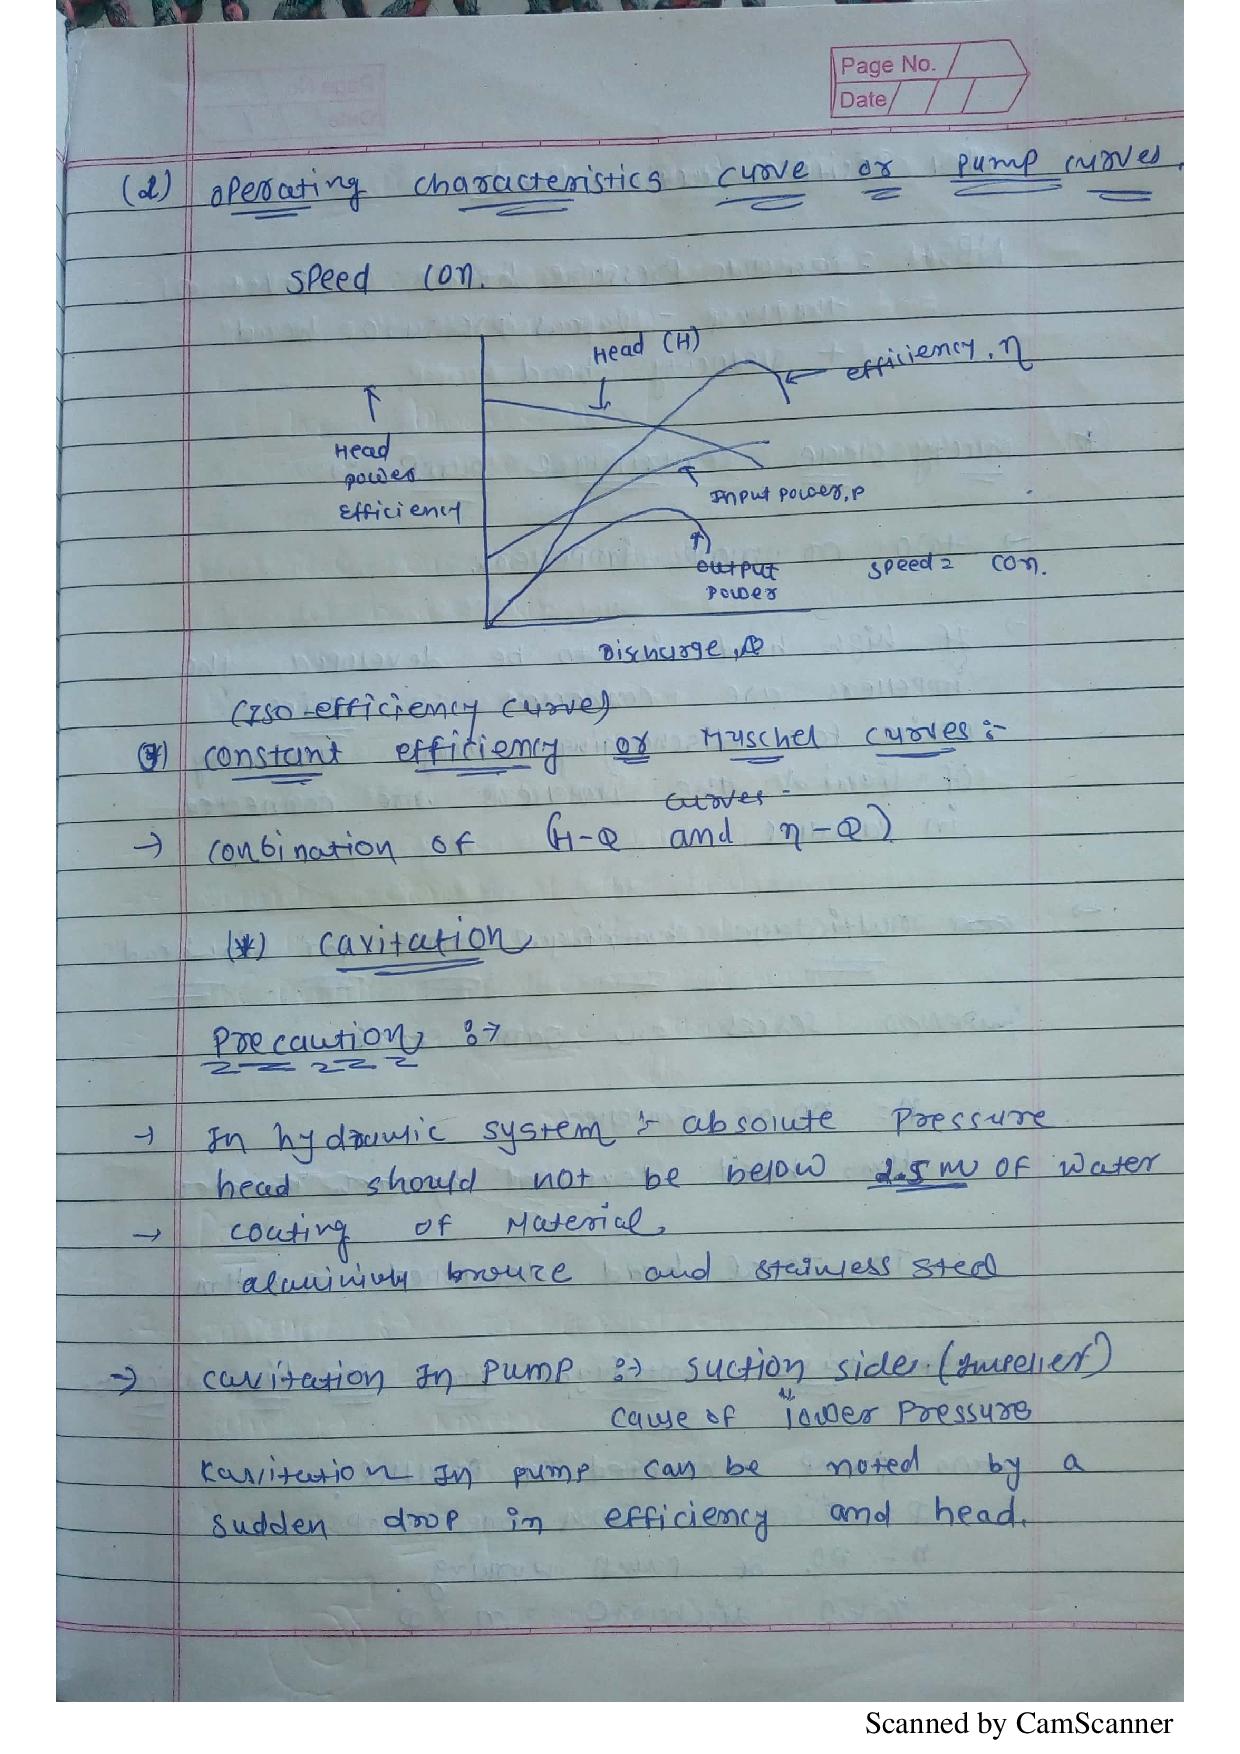 Page No.
Date
(2) operating characteristics curve or pump curves.
speed con.
Head (H)
efficiency, η
Head
power
Efficiency
Input power, P
output
power
speed = con.
Discharge, Q
(Iso-efficiency curve)
(*) constant efficiency or Muschel curves :-
curves -
→ conbination of (H-Q and η-Q)
(*) cavitation
Precaution :→
→ In hydraulic system :- absolute pressure
head should not be below 2.5 m of water
→ coating of Material,
aluminium bronze and stainless steel
→ cavitation In pump :→ suction side (Impeller)
cause of lower pressure
Kavitation In pump can be noted by a
sudden drop in efficiency and head.
Scanned by CamScanner